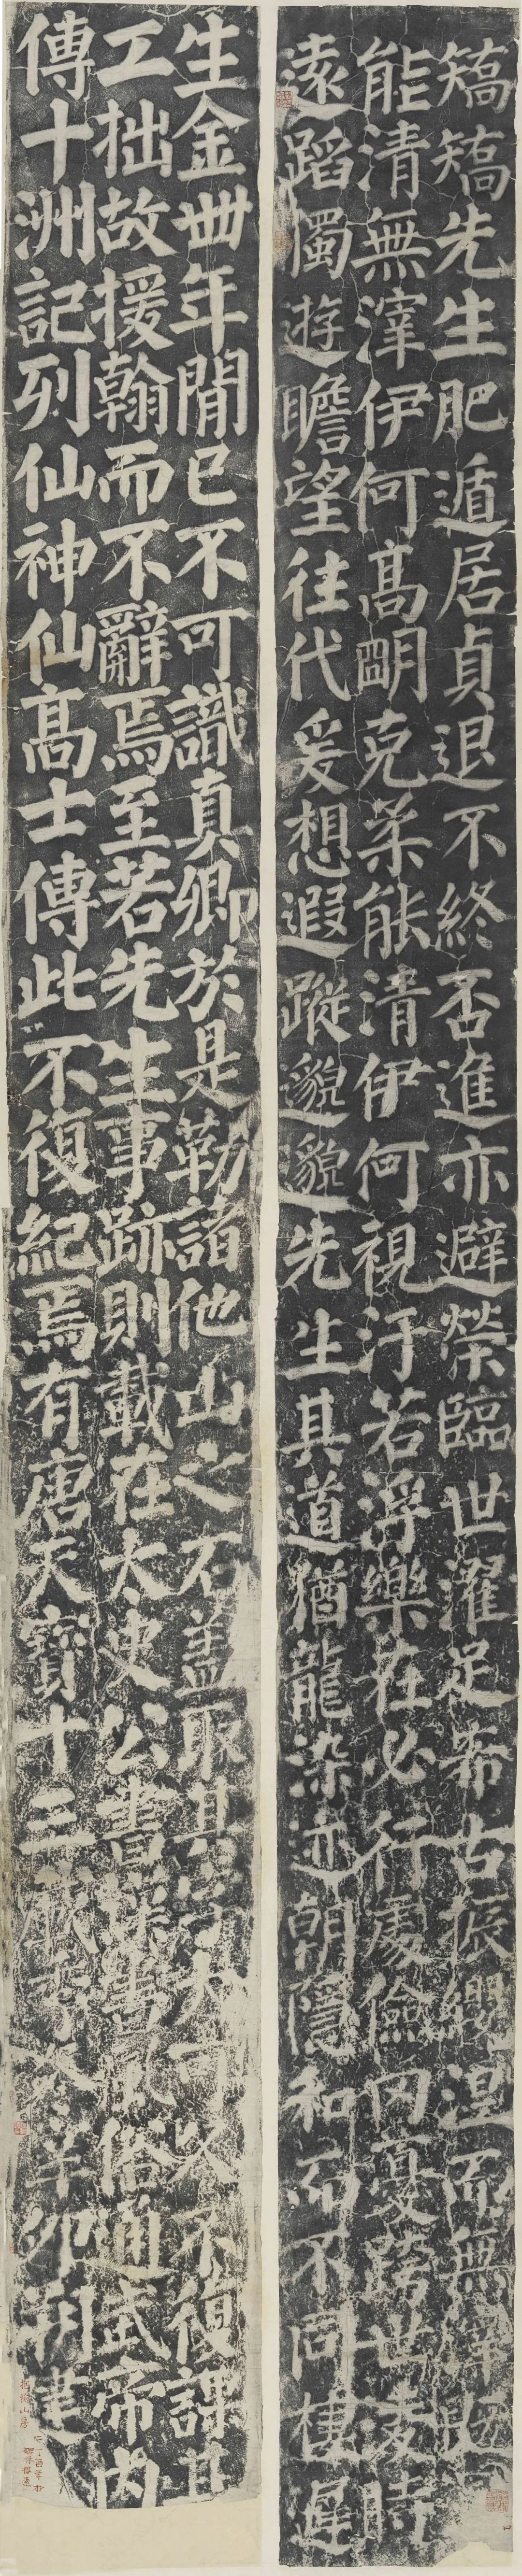 矯矯先生肥遁居貞退不終否進亦避榮臨世濯足希古振纓涅而無滓既
能清無滓伊何高明克柔能清伊何視汙若浮樂在必行處儉罔憂跨世凌時
遠蹈獨遊瞻望往代爰想遐蹤邈邈先生其道猶龍染迹朝隱和而不同棲遲
生金卌年間已不可識真卿於是勒諸他山之石盖取其字大可久不復課其
工拙故援翰而不辭焉至若先生事跡則載在太史公書漢書風俗通武帝內
傳十洲記列仙神仙高士傳此不復紀焉有唐天寶十三載季冬辛卯朔建